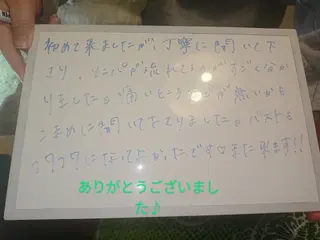 初めて来ましたが、丁寧に聞いて下
さり、リンパが流れているのがすごく分か
りました。痛いところなどが無いかも
こまめに聞いて下さりました。バストも
フワフワになってよかったです♡また来ます!!
ありがとうございまし
た♪